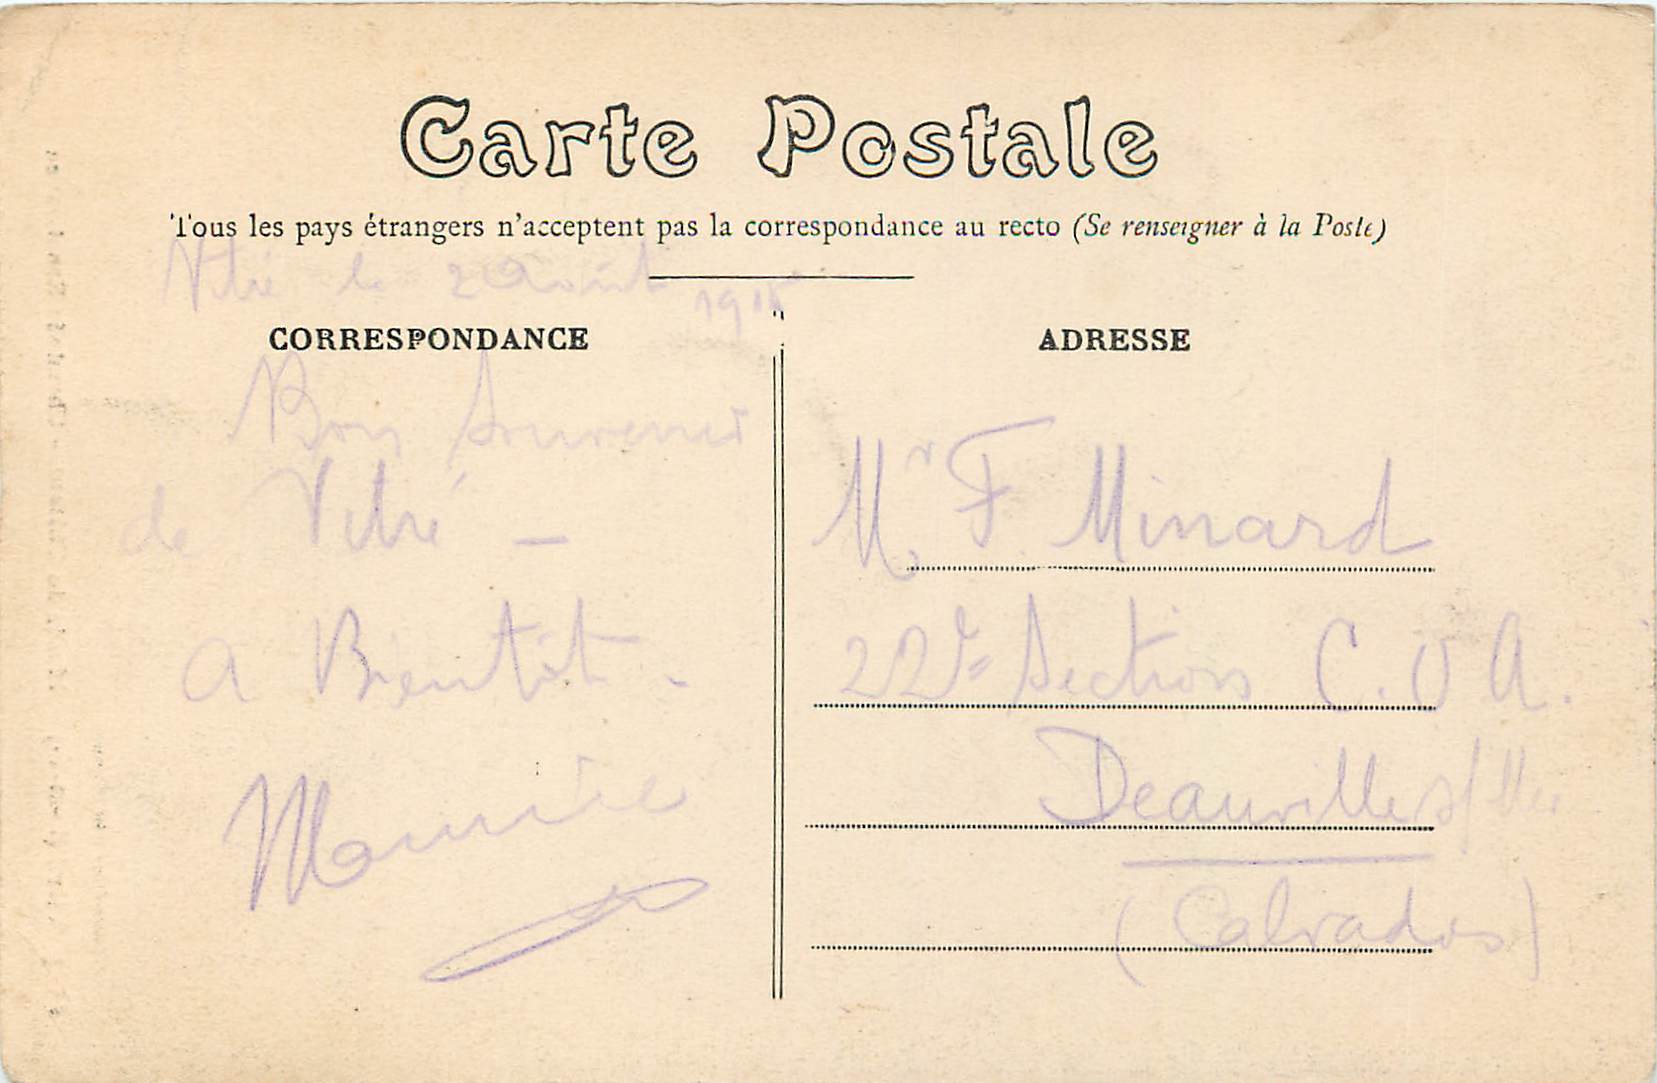 Carte Postale
Tous les pays étrangers n'acceptent pas la correspondance au recto (Se renseigner à la Poste)
Vitré le 2 Août 1915
CORRESPONDANCE
Bon Souvenir
de Vitré —
A Bientôt -
Maurice
ADRESSE
Mr F. Minard
22e Section C.O A.
Deauville s/Mer
(Calvados)